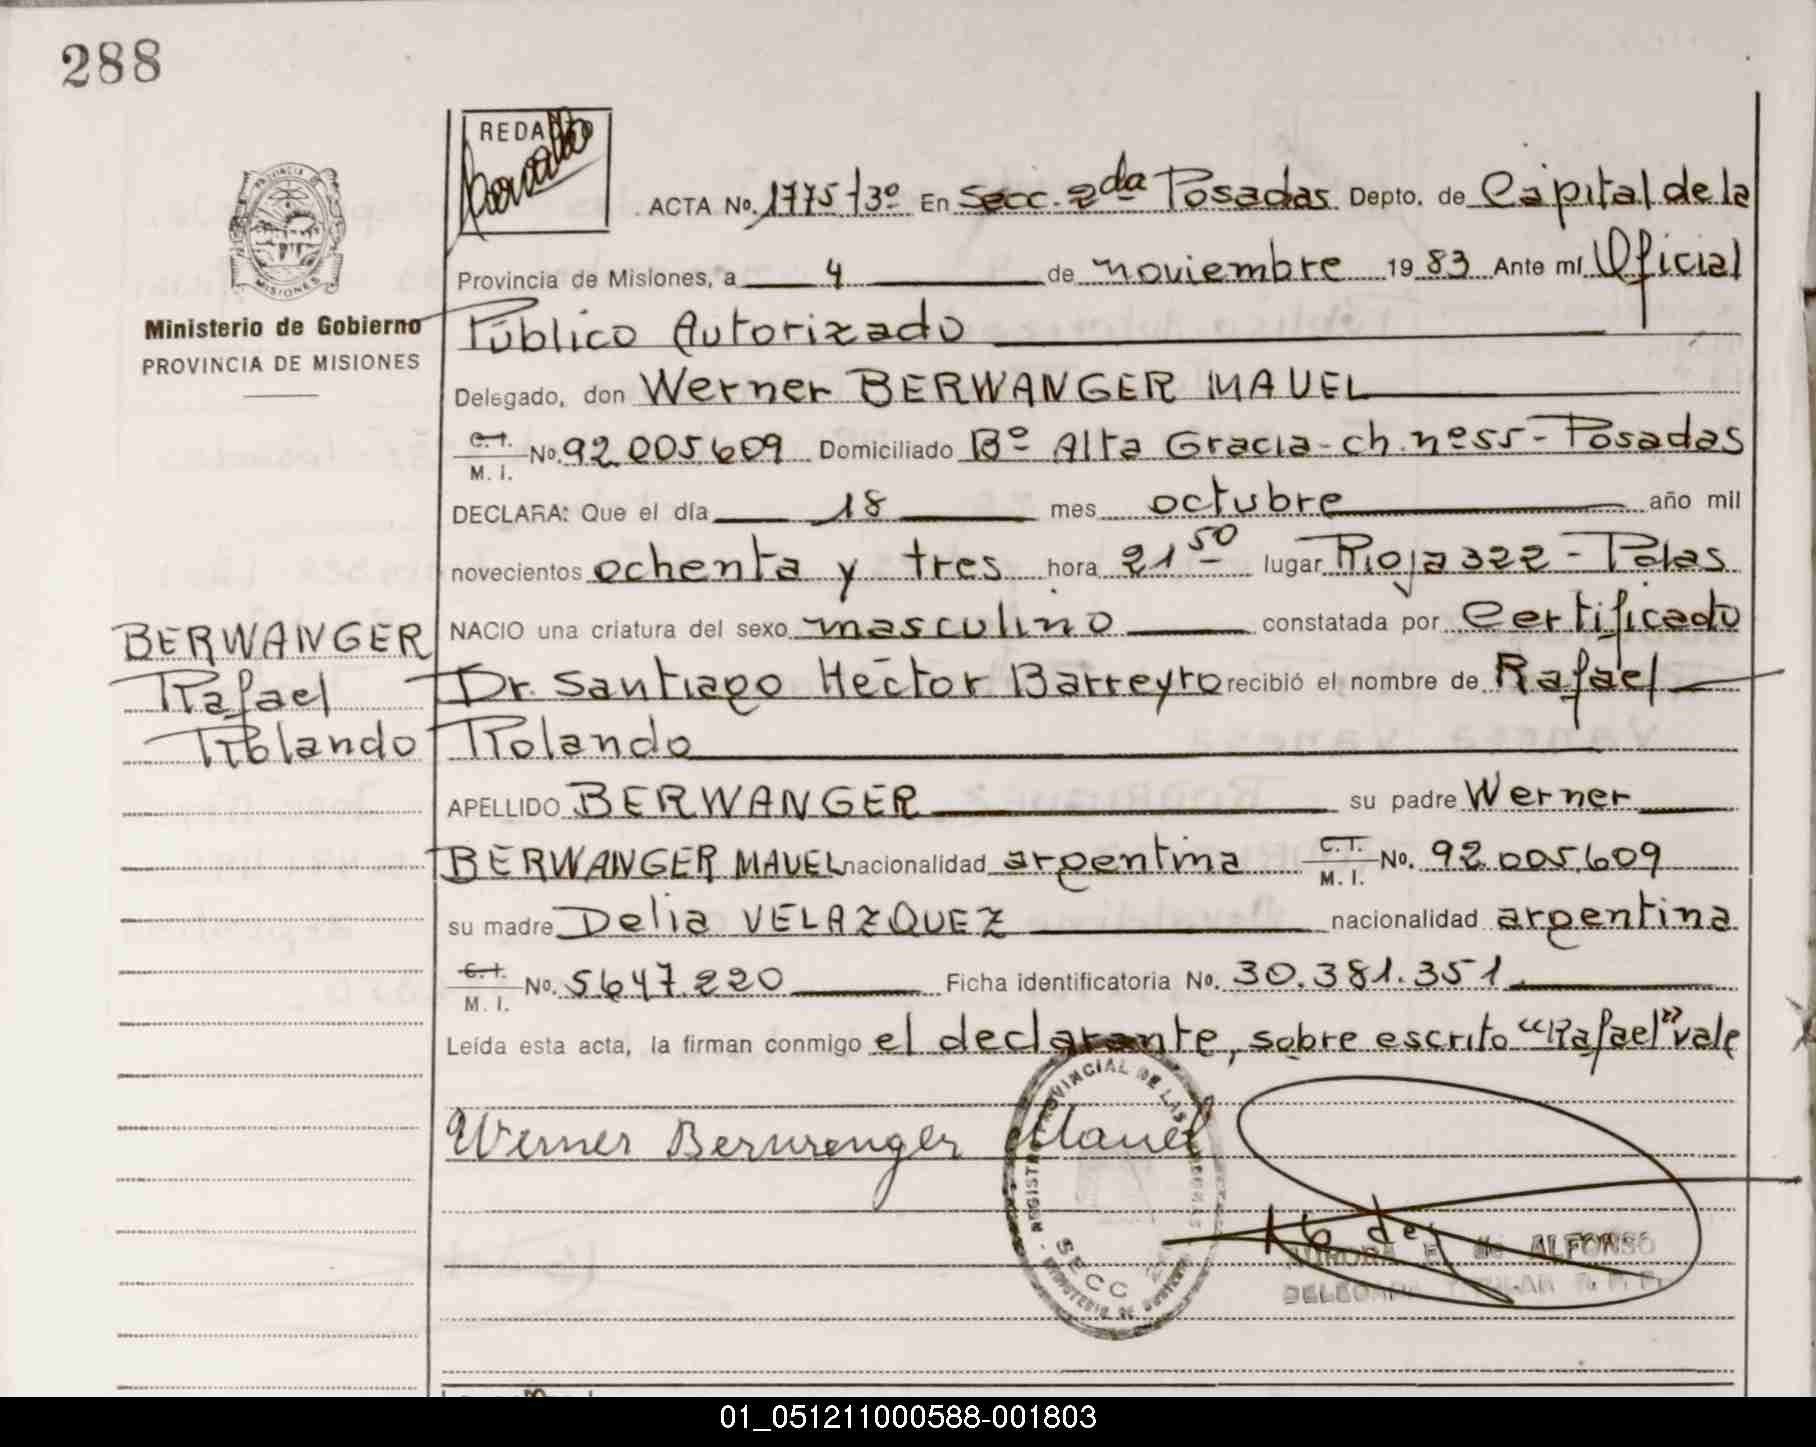 288
REDACTO
PROVINCIA
MISIONES
Ministerio de Gobierno
PROVINCIA DE MISIONES
ACTA No. 1775 T3º En Secc. 2da Posadas Depto. de Capital de la
Provincia de Misiones, a 4 de noviembre 1983 Ante mí Oficial
Público Autorizado
Delegado, don Werner BERWANGER MAUEL
C. I. M. I. No. 92.005.609 Domiciliado Bº Alta Gracia - ch. nº 55 - Posadas
DECLARA: Que el día 18 mes octubre año mil
novecientos ochenta y tres hora 21 50 lugar Rioja 322 - Pdas
NACIO una criatura del sexo masculino constatada por Certificado
Dr. Santiago Héctor Barreyro recibió el nombre de Rafael
Rolando
BERWANGER
Rafael
Rolando
APELLIDO BERWANGER su padre Werner
BERWANGER MAUEL nacionalidad argentina C. I. M. I. No. 92.005.609
su madre Delia VELAZQUEZ nacionalidad argentina
C. I. M. I. No. 5.647.220 Ficha identificatoria No. 30.381.351
Leída esta acta, la firman conmigo el declarante, sobre escrito "Rafael" vale
Werner Berwanger Mauel
PROVINCIAL DE LAS
SECC
AURORA E. de ALFONSO
DELEGADA TITULAR
01_051211000588-001803